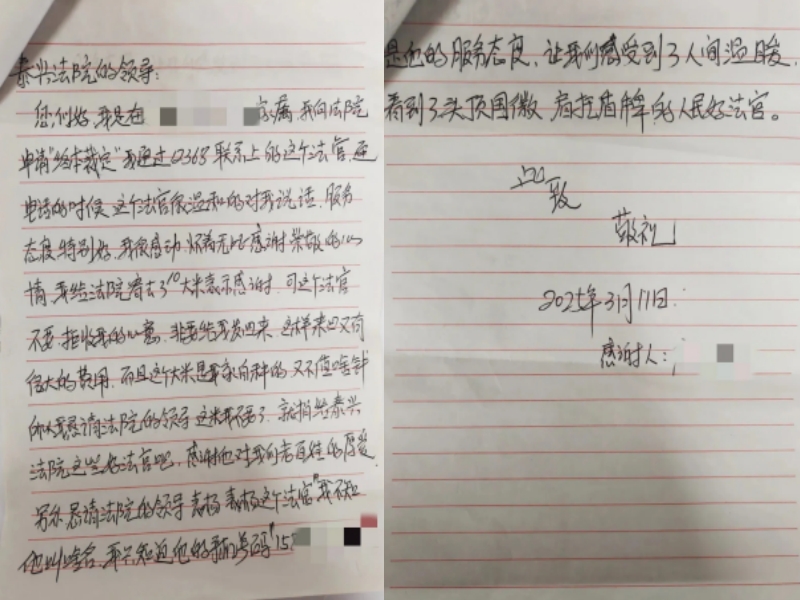 泰兴法院的领导:
您们好,我是在 家属,我向法院
申请"终本裁定"我通过12368联系上的这个法官,在
申请的时候,这个法官很温和的对我说话,服务
态度特别好,我很感动,怀着无比感谢崇敬的心
情,我给法院寄去了10大米表示感谢,可这个法官
不要,拒收我的心意,非要给我发回来,这样来回又有
很大的费用,而且这个大米是我家自种的又不值啥钱
所以我恳请法院的领导这米我不要了,就捎给泰兴
法院这些好法官吧,感谢他对我们老百姓的厚爱
另外恳请法院的领导表扬表扬这个法官"我不知
他叫啥名,我只知道他的手机号码"15
是他的服务态度,让我们感受到了人间温暖,
看到了头顶国徽 肩扛盾牌的人民好法官。
此致
敬礼
2025年3月11日.
感谢人: